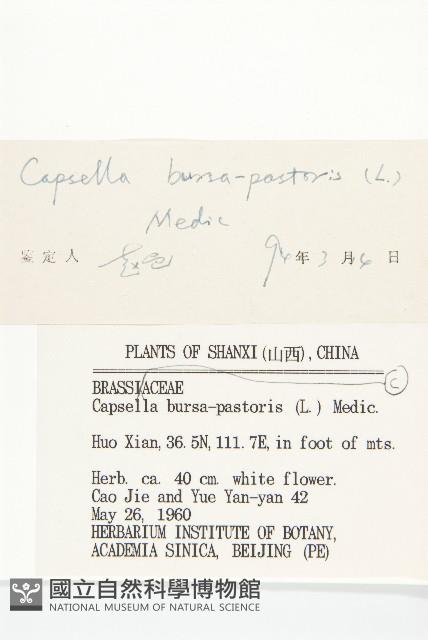 Capsella bursa-pastoris (L.)
Medic
鉴定人 94年3月4日
PLANTS OF SHANXI(山西), CHINA
BRASSIACEAE C
Capsella bursa-pastoris (L.) Medic.
Huo Xian, 36.5N, 111.7E, in foot of mts.
Herb. ca. 40 cm. white flower.
Cao Jie and Yue Yan-yan 42
May 26, 1960
HERBARIUM INSTITUTE OF BOTANY,
ACADEMIA SINICA, BEIJING (PE)
國立自然科學博物館
NATIONAL MUSEUM OF NATURAL SCIENCE